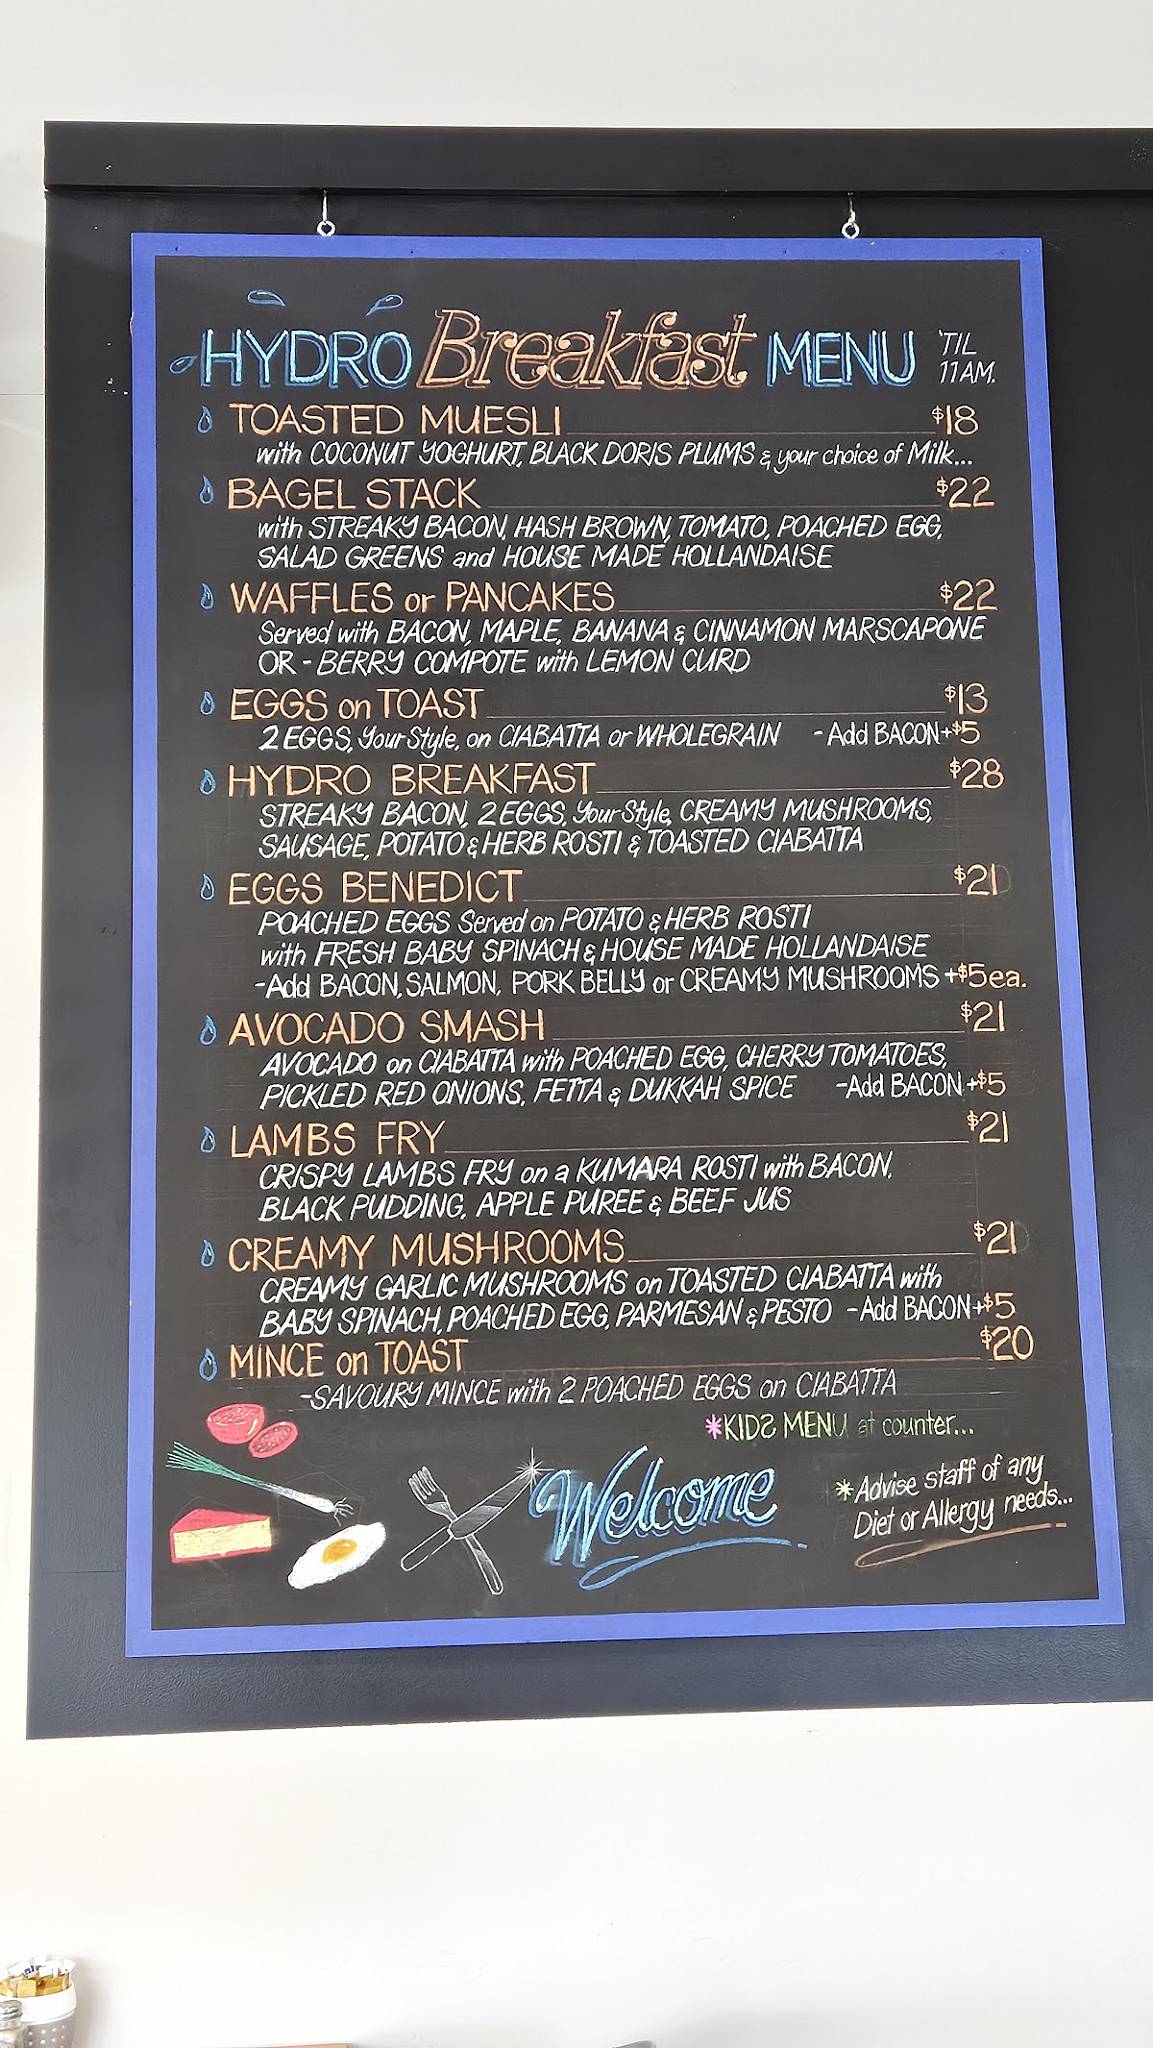 HYDRO Breakfast MENU 'TIL 11AM.
TOASTED MUESLI $18
with COCONUT YOGHURT, BLACK DORIS PLUMS & your choice of Milk...
BAGEL STACK $22
with STREAKY BACON, HASH BROWN, TOMATO, POACHED EGG,
SALAD GREENS and HOUSE MADE HOLLANDAISE
WAFFLES or PANCAKES $22
Served with BACON, MAPLE, BANANA & CINNAMON MARSCAPONE
OR - BERRY COMPOTE with LEMON CURD
EGGS on TOAST $13
2 EGGS, Your Style, on CIABATTA or WHOLEGRAIN - Add BACON +$5
HYDRO BREAKFAST $28
STREAKY BACON, 2 EGGS, Your Style, CREAMY MUSHROOMS,
SAUSAGE, POTATO & HERB ROSTI & TOASTED CIABATTA
EGGS BENEDICT $21
POACHED EGGS Served on POTATO & HERB ROSTI
with FRESH BABY SPINACH & HOUSE MADE HOLLANDAISE
-Add BACON, SALMON, PORK BELLY or CREAMY MUSHROOMS +$5ea.
AVOCADO SMASH $21
AVOCADO on CIABATTA with POACHED EGG, CHERRY TOMATOES,
PICKLED RED ONIONS, FETTA & DUKKAH SPICE -Add BACON +$5
LAMBS FRY $21
CRISPY LAMBS FRY on a KUMARA ROSTI with BACON,
BLACK PUDDING, APPLE PUREE & BEEF JUS
CREAMY MUSHROOMS $21
CREAMY GARLIC MUSHROOMS on TOASTED CIABATTA with
BABY SPINACH, POACHED EGG, PARMESAN & PESTO -Add BACON +$5
MINCE on TOAST $20
-SAVOURY MINCE with 2 POACHED EGGS on CIABATTA
*KIDS MENU at counter...
Welcome
*Advise staff of any
Diet or Allergy needs...